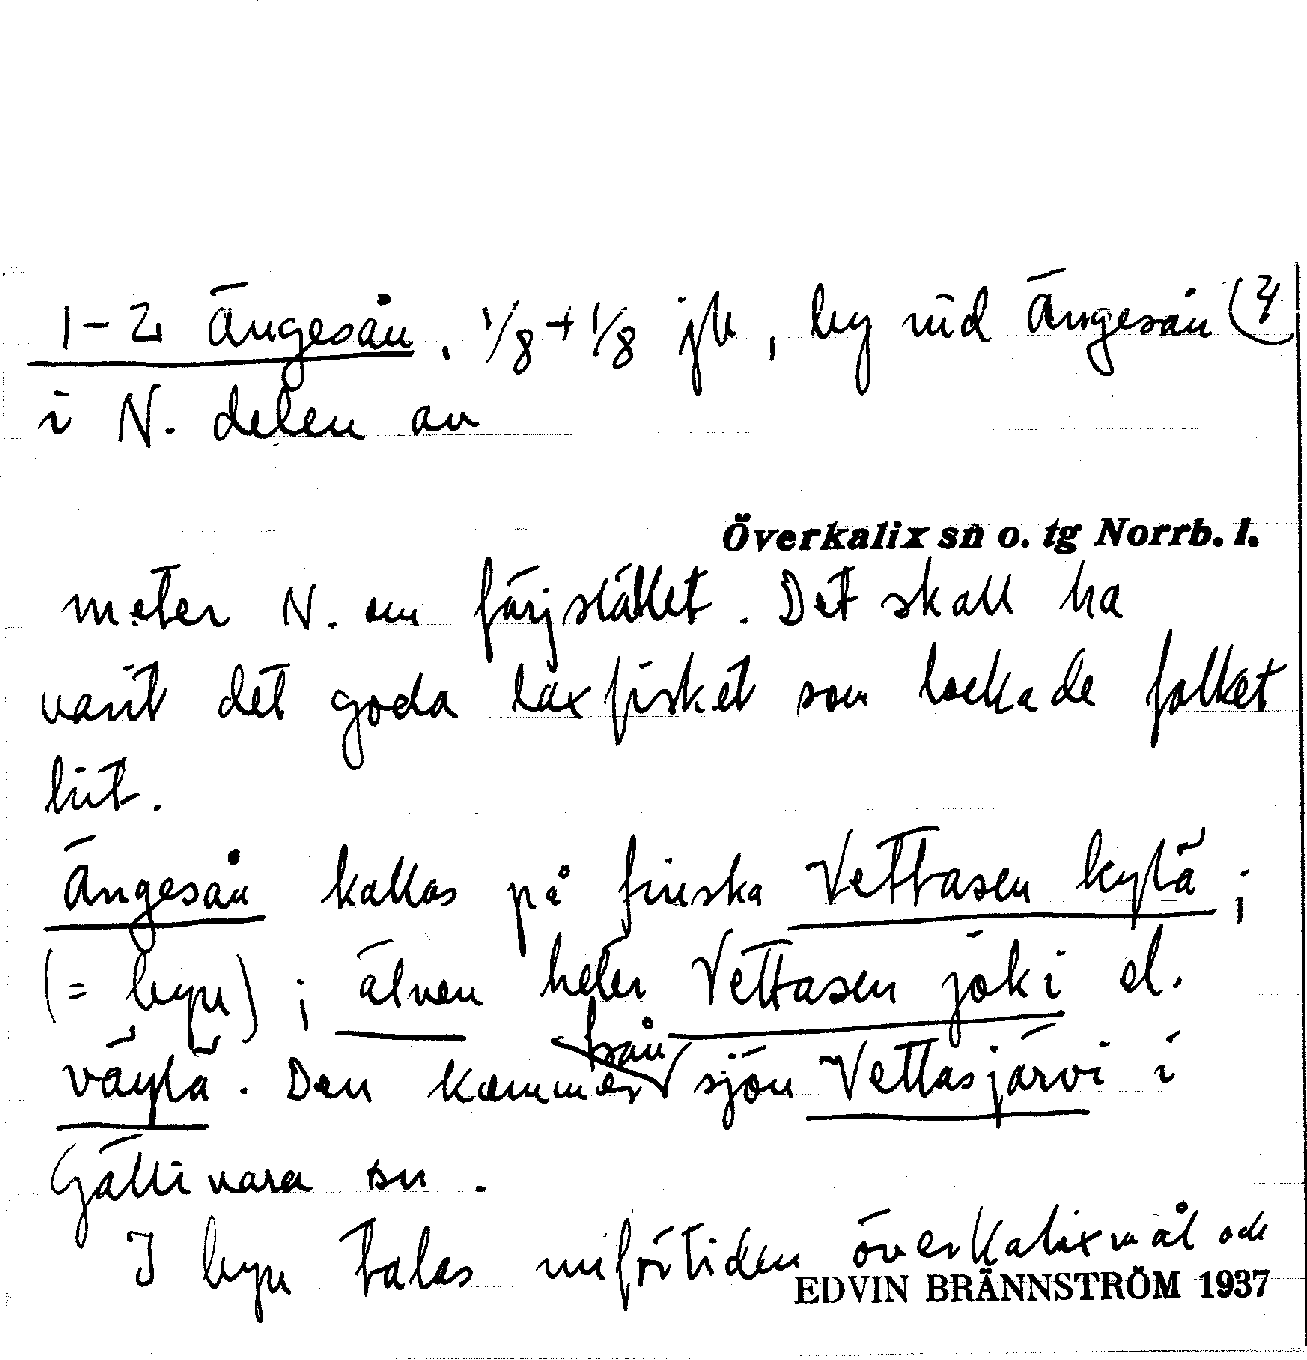 1-2 Ängesån, 1/8 + 1/8 jb, by vid Ängesån (4
i N. delen av
Överkalix sn o. tg Norrb. l.
meter N. om färjstället. Det skall ha
varit det goda laxfisket som lockade folket
hit.
Ängesån kallas på finska Vettasen kylä;
(= byn); älven heter Vettasen joki el.
väylä. Den kommer från sjön Vettasjärvi i
Gällivara sn.
I byn talas nuförtiden överkalixmål och
EDVIN BRÄNNSTRÖM 1937